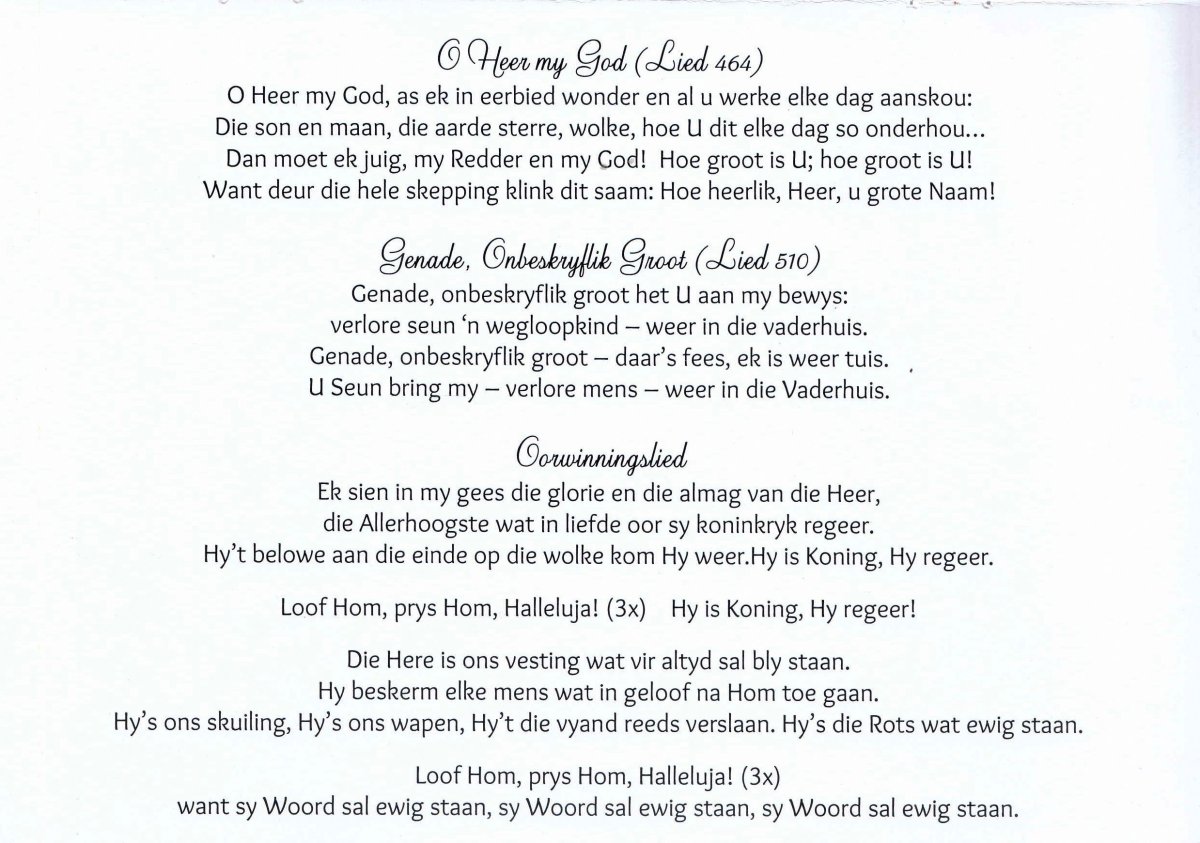 O Heer my God (Lied 464)
O Heer my God, as ek in eerbied wonder en al u werke elke dag aanskou:
Die son en maan, die aarde sterre, wolke, hoe U dit elke dag so onderhou...
Dan moet ek juig, my Redder en my God! Hoe groot is U; hoe groot is U!
Want deur die hele skepping klink dit saam: Hoe heerlik, Heer, u grote Naam!
Genade, Onbeskryflik Groot (Lied 510)
Genade, onbeskryflik groot het U aan my bewys:
verlore seun ‘n wegloopkind – weer in die vaderhuis.
Genade, onbeskryflik groot – daar’s fees, ek is weer tuis.
U Seun bring my – verlore mens – weer in die Vaderhuis.
Oorwinningslied
Ek sien in my gees die glorie en die almag van die Heer,
die Allerhoogste wat in liefde oor sy koninkryk regeer.
Hy’t belowe aan die einde op die wolke kom Hy weer.Hy is Koning, Hy regeer.
Loof Hom, prys Hom, Halleluja! (3x) Hy is Koning, Hy regeer!
Die Here is ons vesting wat vir altyd sal bly staan.
Hy beskerm elke mens wat in geloof na Hom toe gaan.
Hy’s ons skuiling, Hy’s ons wapen, Hy’t die vyand reeds verslaan. Hy’s die Rots wat ewig staan.
Loof Hom, prys Hom, Halleluja! (3x)
want sy Woord sal ewig staan, sy Woord sal ewig staan, sy Woord sal ewig staan.